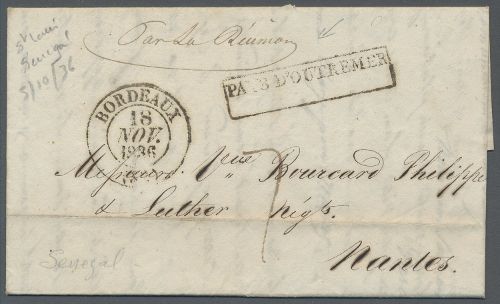 St Louis
Senegal
5/10/36
Par La Réunion
PAYS D'OUTREMER
BORDEAUX
18
NOV.
1836
7
Messieurs Veuve Bourcard Philippe
& Luther Négts.
Nantes.
Senegal